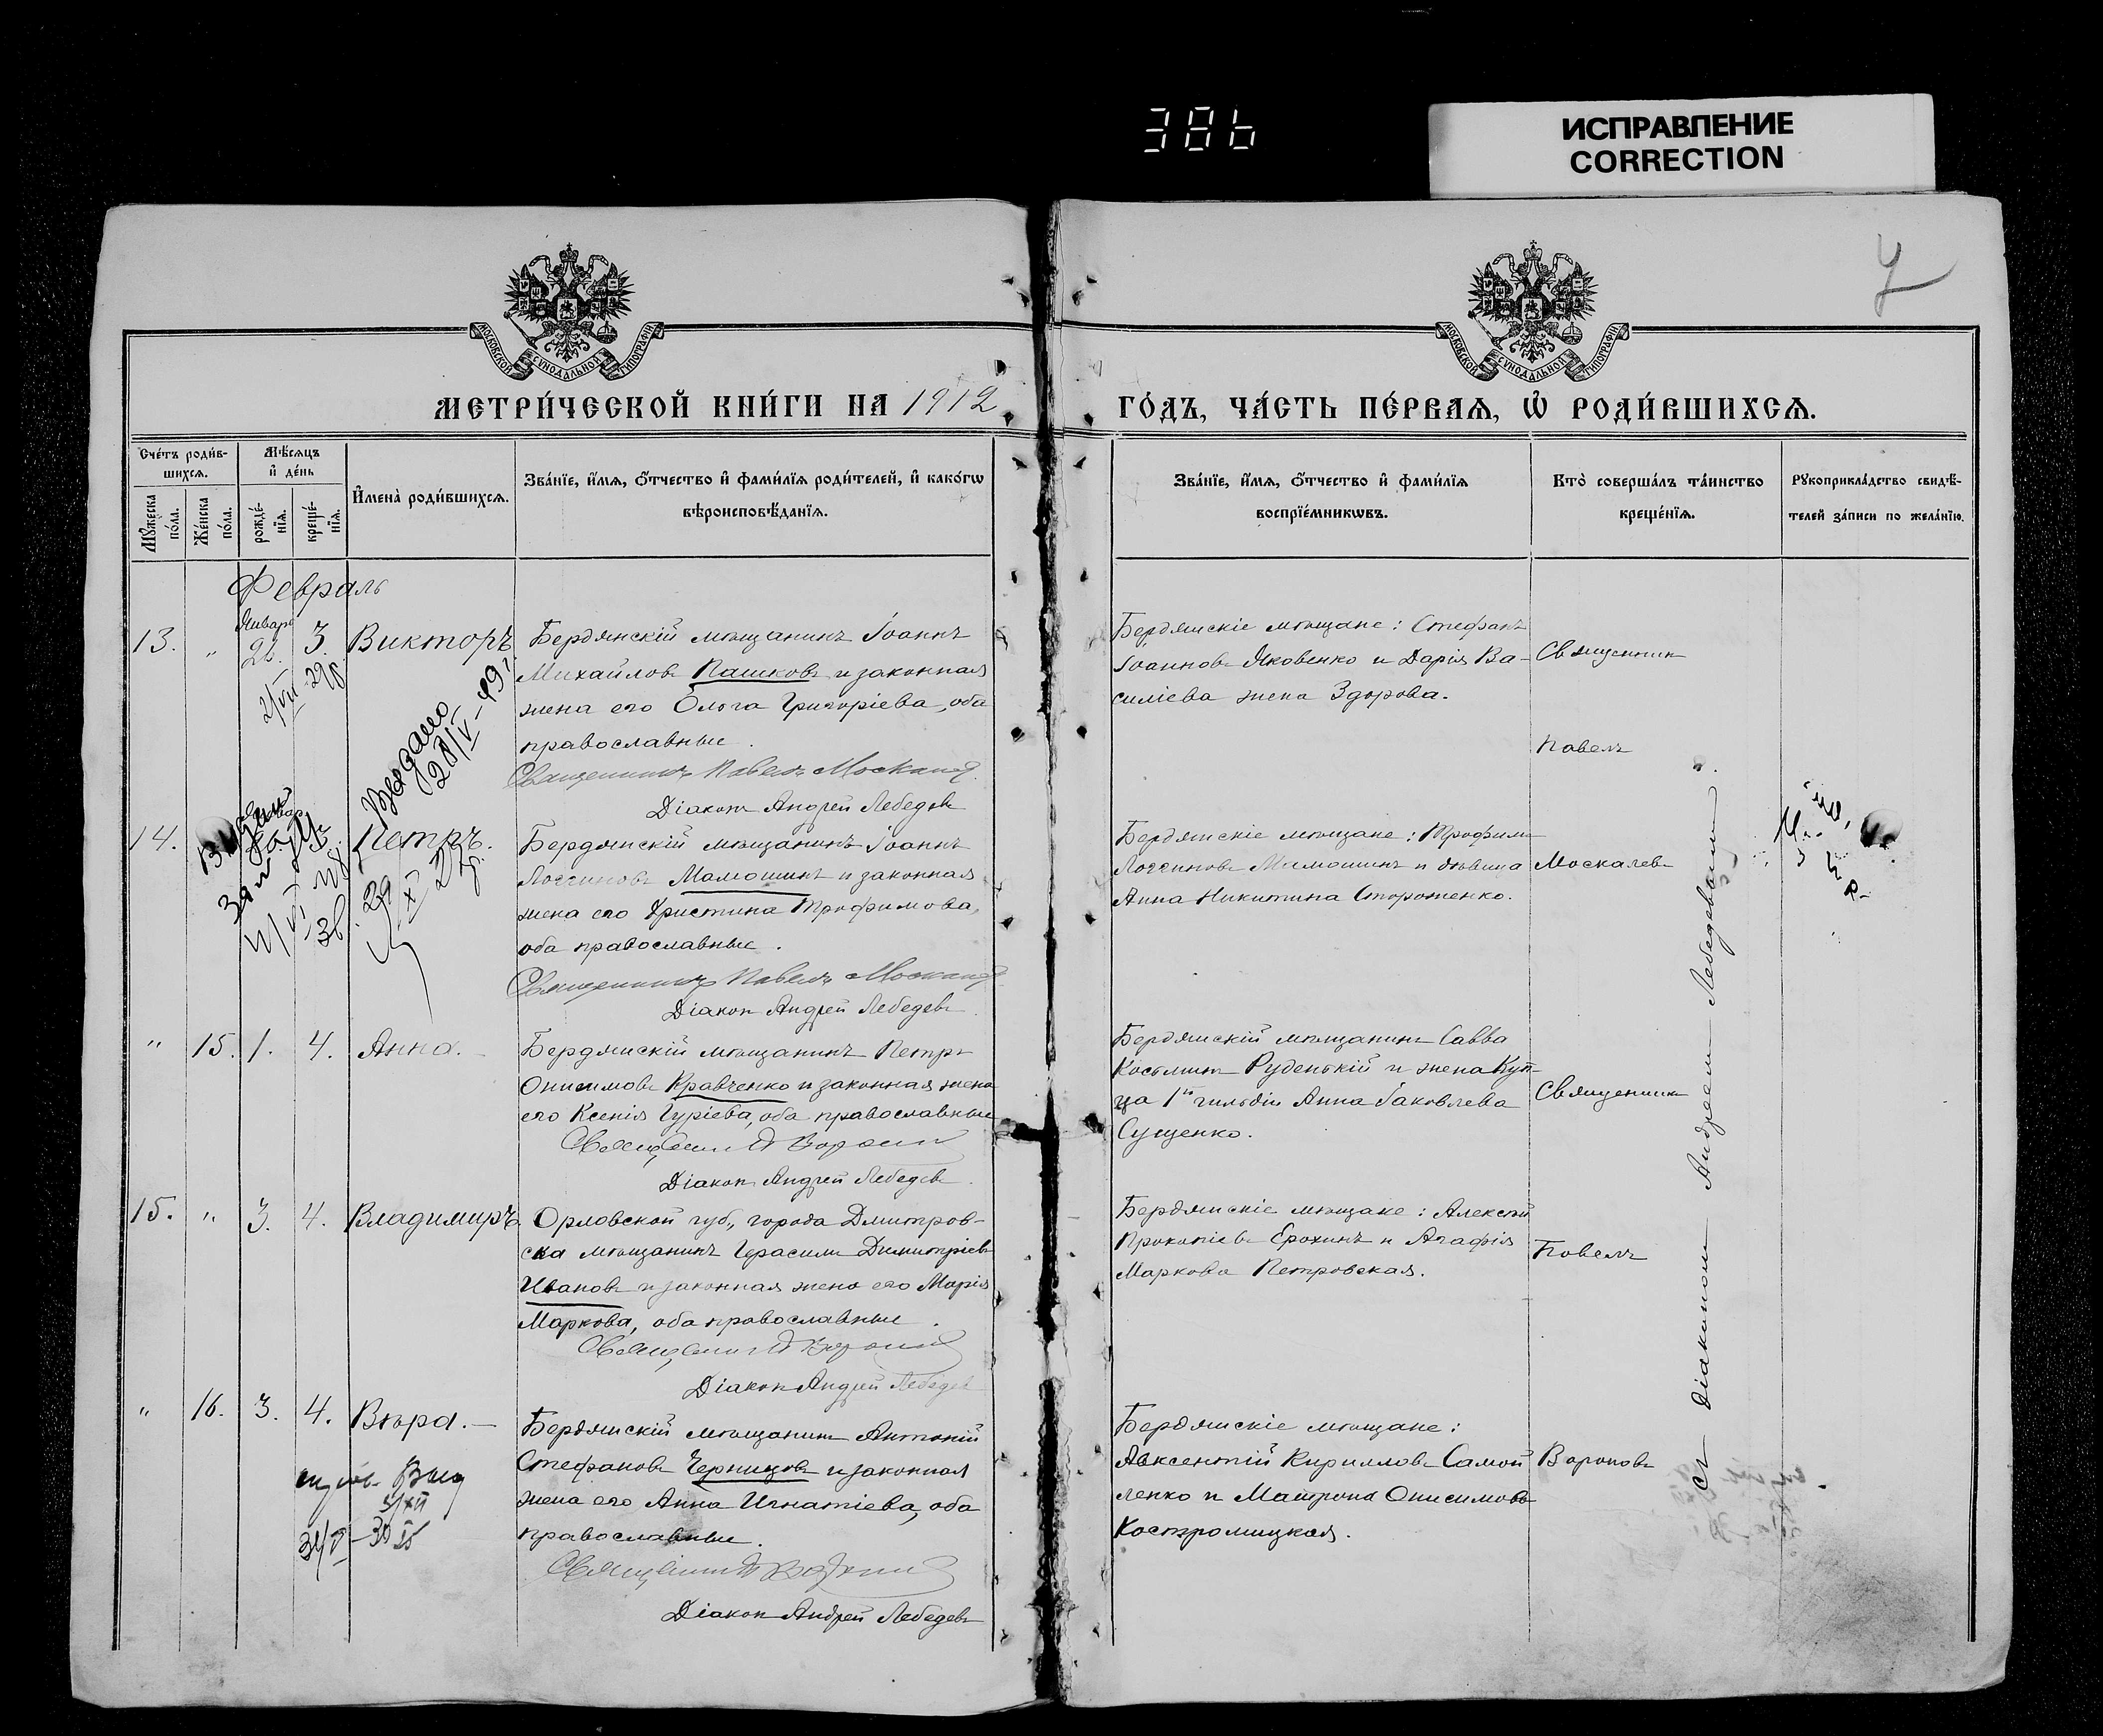 386
ИСПРАВЛЕНИЕ
CORRECTION
МОСКОВСКОЙ СѴНОДАЛЬНОЙ ТИПОГРАФІИ
МОСКОВСКОЙ СѴНОДАЛЬНОЙ ТИПОГРАФІИ
МЕТРИ́ЧЕСКОЙ КНИ́ГИ НА 1912
ГО́ДЪ, ЧА́СТЬ ПЕ́РВАѦ, Ѽ РОДИ́ВШИХСѦ.
Сче́тъ роди́в-
шихсѧ.
Мѣ́сѧцъ
и҆ де́нь
Мꙋ́жеска
по́ла.
Же́нска
по́ла.
рожде́-
нїѧ.
креще́-
нїѧ.
И҆мена̀ роди́вшихсѧ.
Зва́нїе, и҆́мѧ, ѻ҆́тчество и҆ фами́лїѧ роди́телей, и҆ како́гѡ
вѣроисповѣ́данїѧ.
Зва́нїе, и҆́мѧ, ѻ҆́тчество и҆ фами́лїѧ
воспрїе́мникѡвъ.
Кто̀ соверша́лъ та́инство
креще́нїѧ.
Рꙋкоприкла́дство свидѣ́-
телей за́писи по жела́нїю.
Февраль
13. " Январь 26. 3. Викторъ
Бердянскій мѣщанинъ Іоаннъ
Михайловъ Пашковъ и законная
жена его Ольга Григоріева, оба
православные.
Священникъ Павелъ Москалев
Діаконъ Андрей Лебедевъ
Бердянскіе мѣщане: Стефанъ
Іоанновъ Яковенко и Дарія Ва-
силіева жена Здорова.
Священник
Павелъ
Выдано
28/V-49
14. 3. Петръ.
Бердянскій мѣщанинъ Іоаннъ
Логгиновъ Мамошинъ и законная
жена его Христина Трофимова,
оба православные.
Священникъ Павелъ Москалев
Діаконъ Андрей Лебедевъ
Бердянскіе мѣщане: Трофимъ
Логгиновъ Мамошинъ и дѣвица
Анна Никитина Стороженко.
Москалевъ
" 15. 1. 4. Анна.
Бердянскій мѣщанинъ Петръ
Онисимовъ Кравченко и законная жена
его Ксенія Гуріева, оба православные
Діаконъ Андрей Лебедевъ
Бердянскій мѣщанинъ Савва
Руденькій и жена Куп-
ца 1й гильдіи Анна Іаковлева
Сущенко.
Священник
15. " 3. 4. Владимиръ.
Орловской губ., города Дмитров-
ска мѣщанинъ Герасимъ Димитріевъ
Ивановъ и законная жена его Марія
Маркова, оба православные.
Діаконъ Андрей Лебедев
Бердянскіе мѣщане: Алексѣй
Прокопіевъ Ерохинъ и Агафія
Маркова Петровская.
Павелъ
" 16. 3. 4. Вѣра.
Бердянскій мѣщанинъ Антоній
Стефановъ Черницовъ и законная
жена его Анна Игнатіева, оба
православные.
Діаконъ Андрей Лебедевъ
Бердянскіе мѣщане:
Авксентій Кирилловъ Самой
ленко и Матрона Онисимова
Костромицкая.
Вороновъ
съ діакономъ Андреемъ Лебедевымъ.